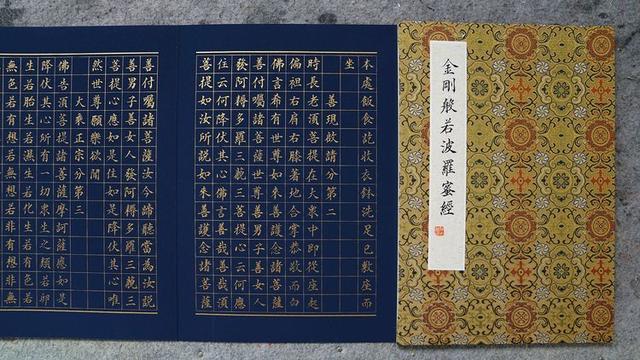 金剛般若波羅蜜經
本處飯食訖收衣鉢洗足已敷座而
坐
善現啟請分第二
時長老須菩提在大衆中即從座起
偏袒右肩右膝著地合掌恭敬而白
佛言希有世尊如來善護念諸菩薩
善付囑諸菩薩世尊善男子善女人
發阿耨多羅三藐三菩提心云何應
住云何降伏其心佛言善哉善哉須
菩提如汝所說如來善護念諸菩薩
善付囑諸菩薩汝今諦聽當為汝說
善男子善女人發阿耨多羅三藐三
菩提心應如是住如是降伏其心唯
然世尊願樂欲聞
大乘正宗分第三
佛告須菩提諸菩薩摩訶薩應如是
降伏其心所有一切衆生之類若卵
生若胎生若濕生若化生若有色若
無色若有想若無想若非有想非無